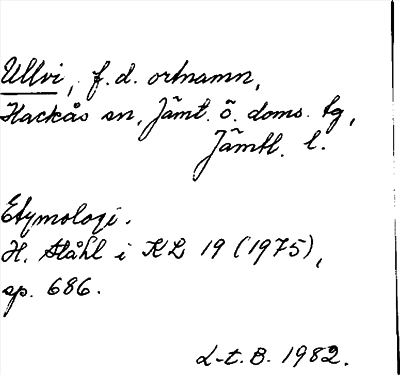 Ullvi, f.d. ortnamn,
Hackås sn, Jämt. ö. doms. tg,
Jämtl. l.
Etymologi.
H. Ståhl i KL 19 (1975),
sp. 686.
L-t. B. 1982.